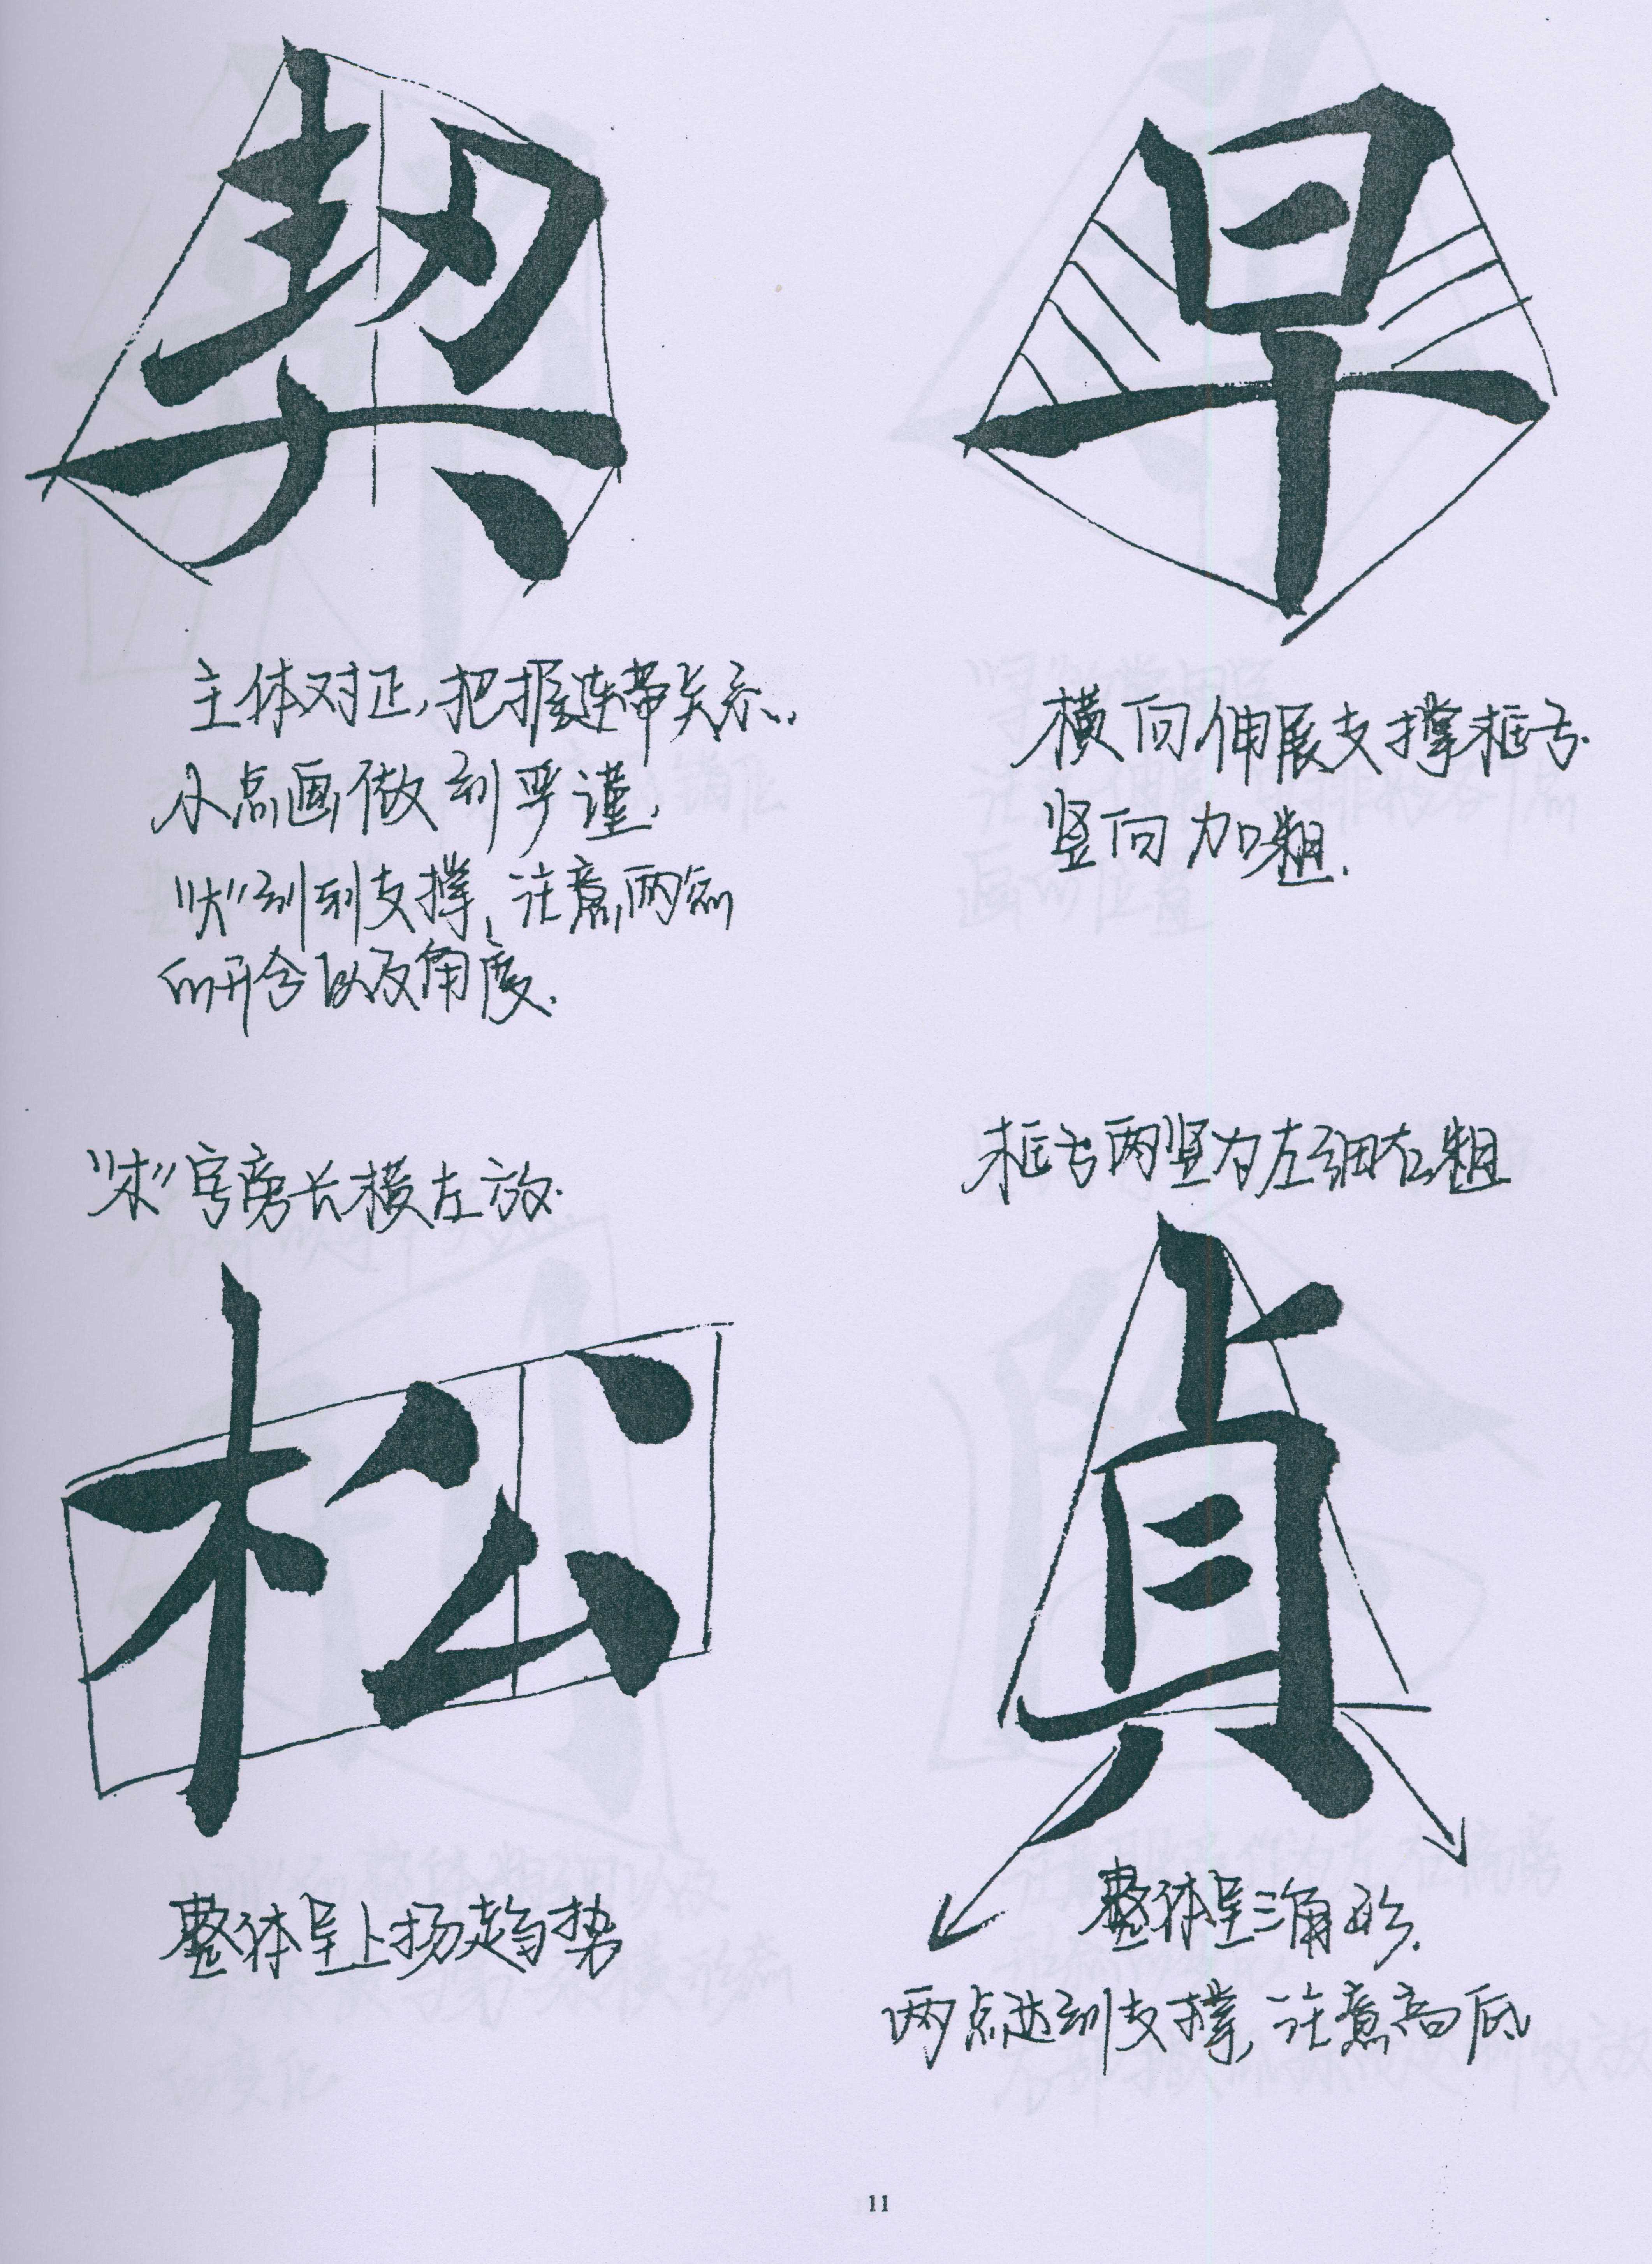 契
主体对正，把握连带关系，
小点画做到严谨，
"大"到支撑，注意两
开合以及角度.
早
横向伸展支撑框右.
竖向加粗.
"木"字旁长横左放.
松
整体呈上扬趋势
框右两竖为左细右粗
貞
整体呈三角形.
两点达到支撑，注意高低
11